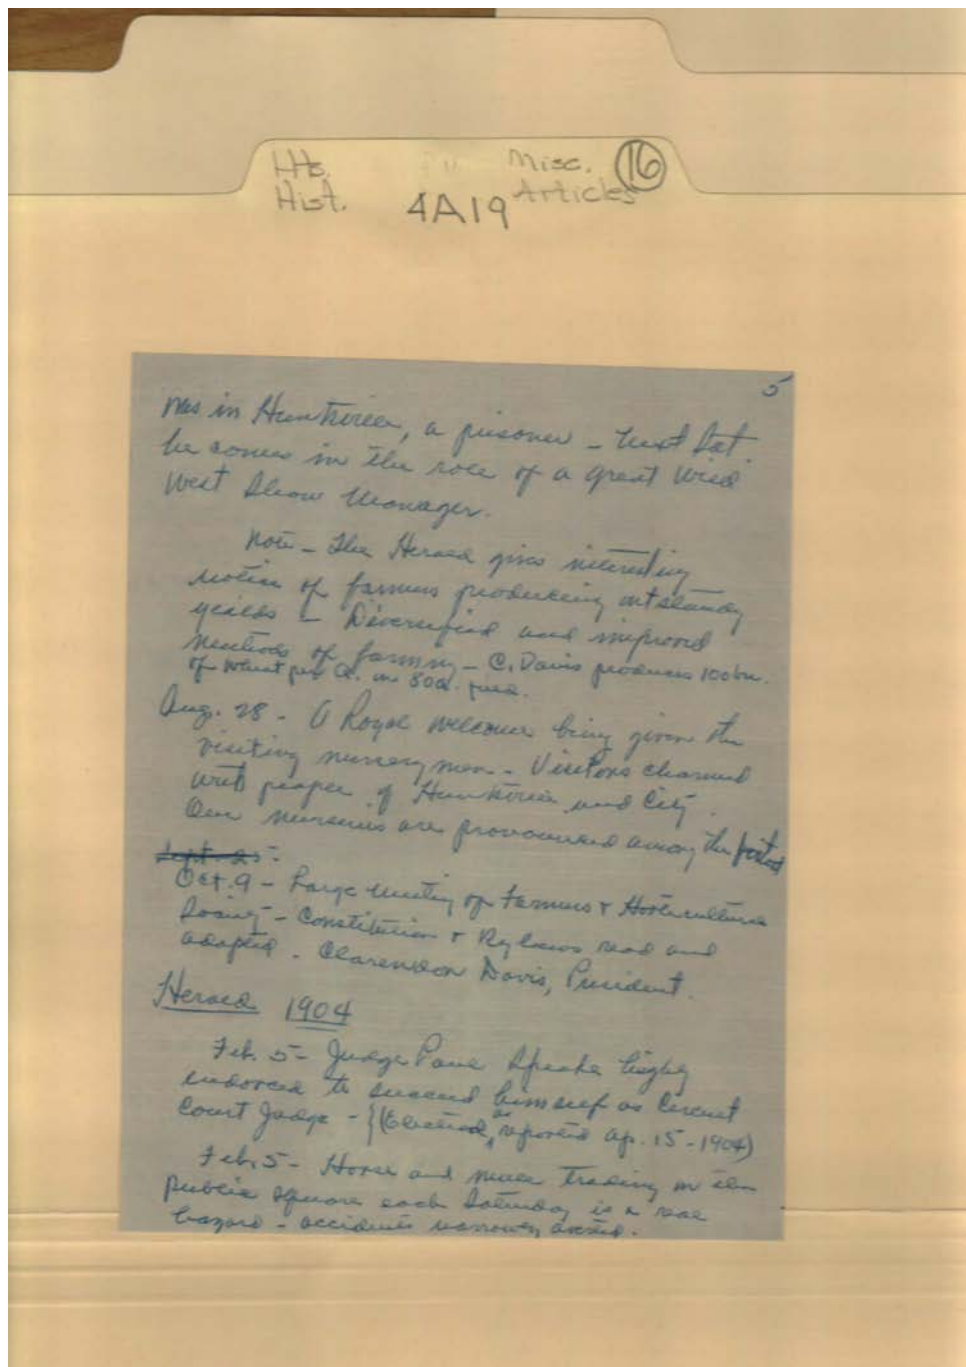 Hts.
Hist.
4A19
Misc.
Articles
16
5
was in Huntsville, a prisoner – next Sat.
he comes in the role of a great Wild
West Show Manager.
Note – The Herald gives interesting
notice of farmers producing outstanding
yields – Diversified and improved
methods of farming – C. Davis produces 100 bu.
of wheat per a. in 80a. field.
Aug. 28 – A Royal welcome being given the
visiting nurserymen – Visitors charmed
with people of Huntsville and City.
Our nurseries are pronounced among the
Sept. 25-
Oct. 9 – Large meeting of Farmers + Horticulture
Society – Constitution + By laws read and
adopted. Clarendon Davis, President.
Herald 1904
Feb. 5 – Judge Paul Speake highly
endorced to succeed himself as Circuit
Court Judge – {(Elected, as reported Ap. 15-1904)
Feb. 5 – Horse and mule trading on the
public square each Saturday is a real
hazard – accidents narrowly averted.